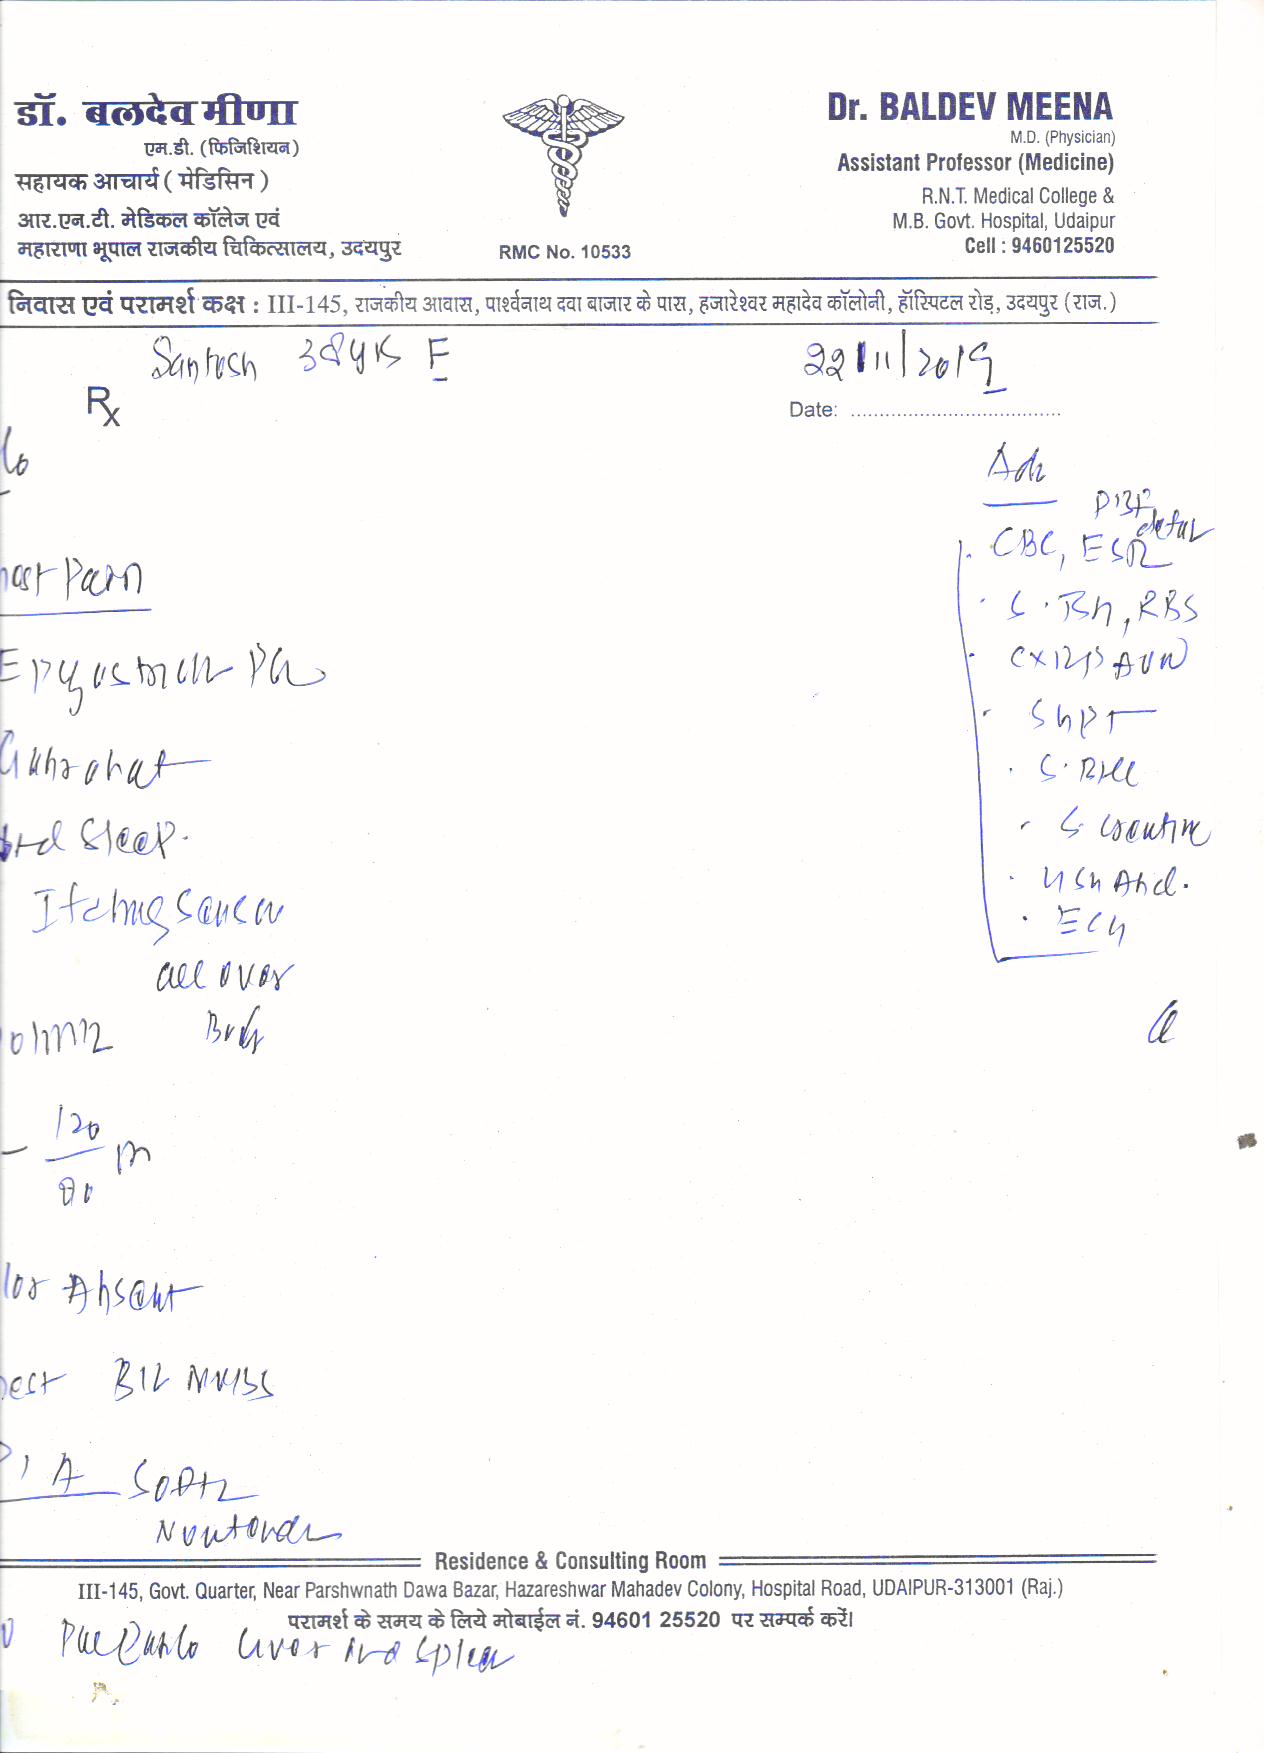 डॉ. बलदेव मीणा
एम.डी. (फिजिशियन)
सहायक आचार्य ( मेडिसिन )
आर.एन.टी. मेडिकल कॉलेज एवं
महाराणा भूपाल राजकीय चिकित्सालय, उदयपुर
RMC No. 10533
Dr. BALDEV MEENA
M.D. (Physician)
Assistant Professor (Medicine)
R.N.T. Medical College &
M.B. Govt. Hospital, Udaipur
Cell : 9460125520
निवास एवं परामर्श कक्ष : III-145, राजकीय आवास, पार्श्वनाथ दवा बाजार के पास, हजारेश्वर महादेव कॉलोनी, हॉस्पिटल रोड़, उदयपुर (राज.)
Santosh 38yrs F
22/11/2019
Rx
Date:
Adv
CBC, ESR
RBS
SGPT
S.
S creatinine
USG Abd.
ECG
Pain
Gabrahat
Sleep.
Itching
all over
Body
120
80
Absent
B/L NVBS
P/A Soft
Nontender
No Palpable liver and spleen
Residence & Consulting Room
III-145, Govt. Quarter, Near Parshwnath Dawa Bazar, Hazareshwar Mahadev Colony, Hospital Road, UDAIPUR-313001 (Raj.)
परामर्श के समय के लिये मोबाईल नं. 94601 25520 पर सम्पर्क करें।